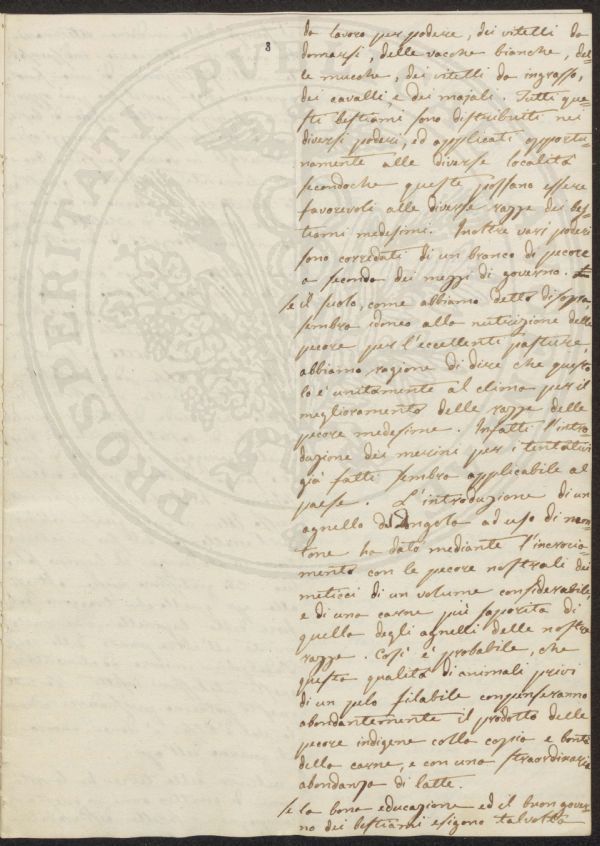 8
da lavoro per podere, dei vitelli da
domarsi, delle vacche bianche, del=
le mucche, dei vitelli da ingrasso,
dei cavalli, e dei majali. Tutti que=
sti bestiami sono distribuiti nei
diversi poderi, ed applicati opportu=
namente alle diverse località
secondoche queste possano essere
favorevoli alle diverse razze dei bes=
tiami medesimi. Inoltre vari poderi
sono corredati di un branco di pecore
a seconda dei mezzi di governo.
se il suolo, come abbiamo detto di sopra
sembra idoneo alla nutrizione delle
pecore per l'eccellenti pasture,
abbiamo ragione di dire che questo
lo è unitamente al clima per il
miglioramento delle razze delle
pecore medesime. Infatti l'intro=
duzione dei merini per i tentativi
già fatti sembra applicabile al
paese. L'introduzione di un
agnello d'Angola ad uso di mon=
tone ha dato mediante l'incrocia=
mento con le pecore nostrali dei
meticci di un volume considerabile
e di una carne più saporita di
quella degli agnelli delle nostre
razze. Così è probabile, che
questa qualità di animali privi
di un pelo filabile compenseranno
abondantemente il prodotto delle
pecore indigene colla copia e bontà
della carne, e con una straordinaria
abondanza di latte.
se la bona educazione ed il buon gover=
no dei bestiami esigono talvolta
PROSPERITATI PUBLICAE